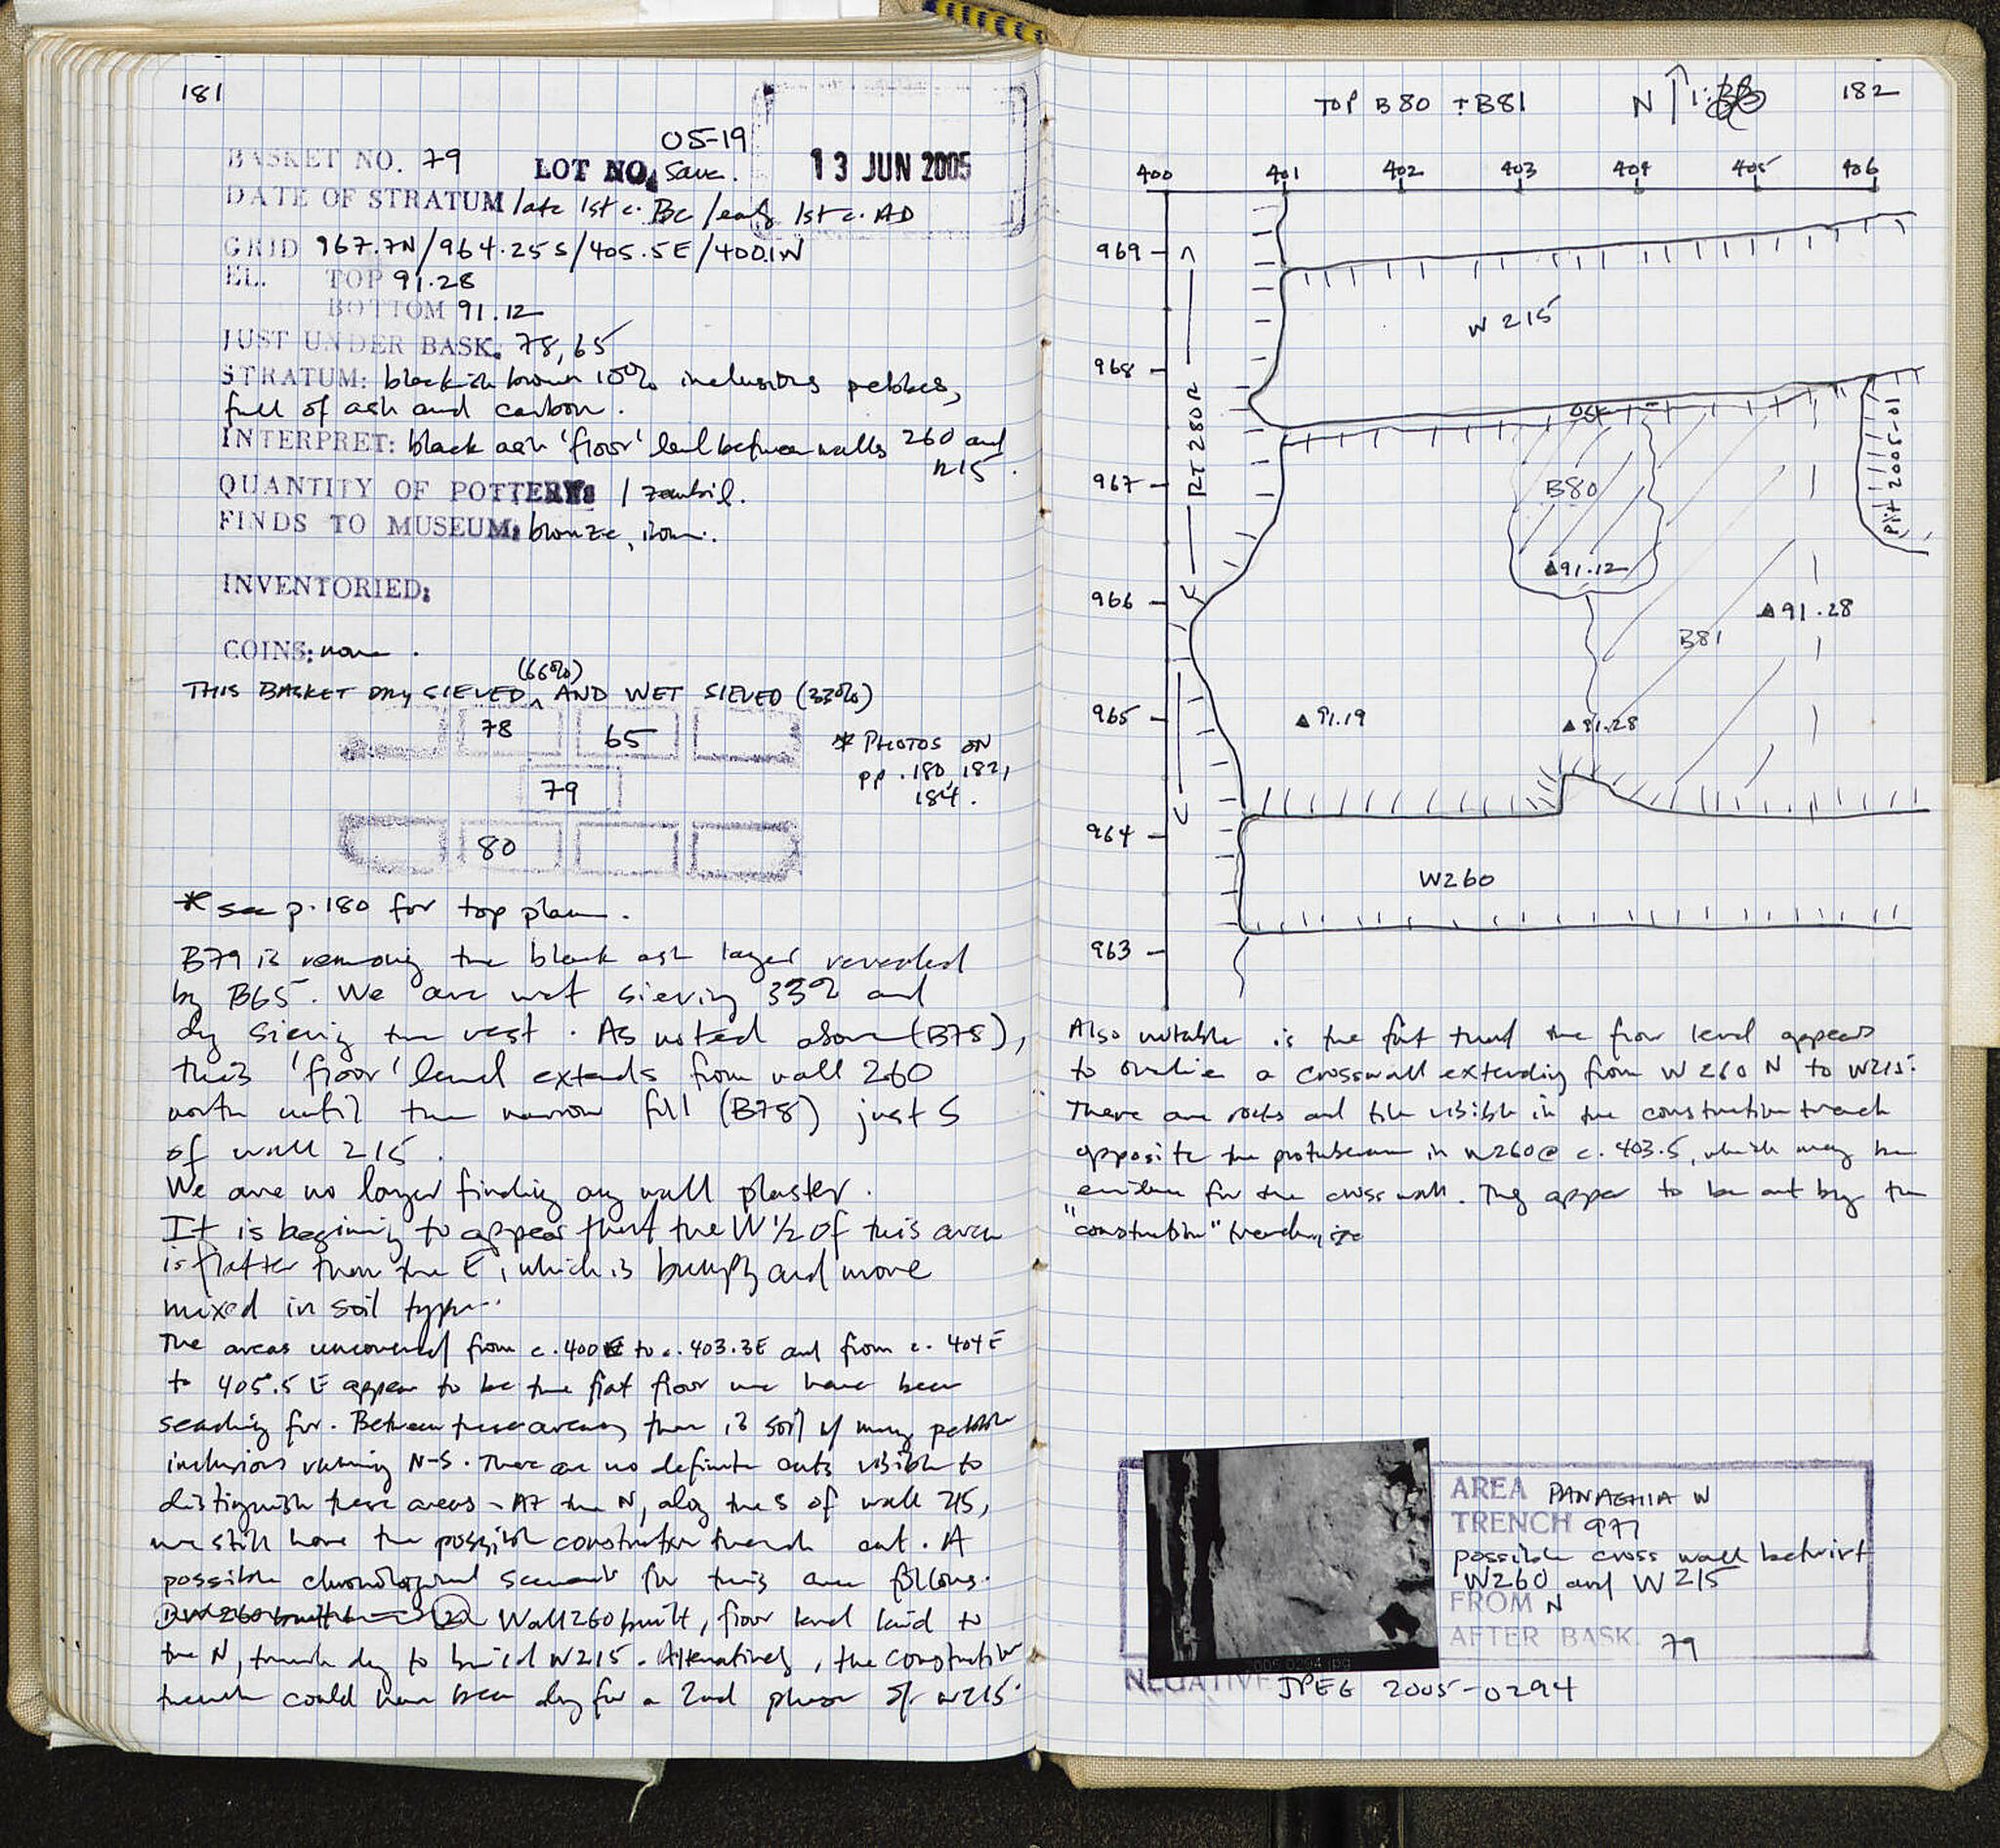 181
05-19
BASKET NO. 79 LOT NO. Save. 13 JUN 2005
DATE OF STRATUM late 1st c. BC / early 1st c. AD
GRID 967.7N/964.25S/405.5E/400.1W
EL. TOP 91.28
BOTTOM 91.12
JUST UNDER BASK. 78, 65
STRATUM: blackish brown 10% inclusions pebbles,
full of ash and carbon.
INTERPRET: black ash 'floor' level between walls 260 and
W215.
QUANTITY OF POTTERY: 1 zembil.
FINDS TO MUSEUM: bronze, iron.
INVENTORIED:
COINS: none.
(66%)
THIS BASKET DRY SIEVED ^ AND WET SIEVED (33%)
78 65
79
80
* PHOTOS ON
pp. 180, 182,
184.
* see p. 180 for top plan.
B79 is removing the black ash layer revealed
by B65. We are wet sieving 33% and
dry sieving the rest. As noted above (B78),
this 'floor' level extends from wall 260
north until the narrow fill (B78) just S
of wall 215.
We are no longer finding any wall plaster.
It is beginning to appear that the W 1/2 of this area
is flatter than the E, which is bumpy and more
mixed in soil type.
The areas uncovered from c. 400E to c. 403.3E and from c. 404E
to 405.5 E appear to be the flat floor we have been
seaching for. Between these areas there is soil w/ many pebble
inclusions running N-S. There are no definite cuts visible to
distinguish these areas - At the N, along the S of wall 215,
we still have the possible construction trench cut. A
possible chronological scenario for this area follows.
① W260 built ② Wall 260 built, floor level laid to
the N, trench dug to build W215. Alternatively, the construction
trench could have been dug for a 2nd phase of W215.
TOP B80 + B81 N 1: 182
400 401 402 403 404 405 406
969
968
967
966
965
964
963
RT 280R
W 215
B80
▲91.12
Pit 2005-01
▲91.28
B81
▲91.19
▲91.28
W260
Also notable is the fact that the floor level appears
to overlie a crosswall extending from W260 N to W215.
There are rocks and tile visible in the construction trench
opposite the protuberance in W260 @ c. 403.5, which may be
evidence for the cross wall. They appear to be cut by the
"construction" trench,
AREA PANAGHIA W
TRENCH 977
possible cross wall betwixt
W260 and W215
FROM N
AFTER BASK. 79
2005-0294.jpg
NEGATIVE JPEG 2005-0294